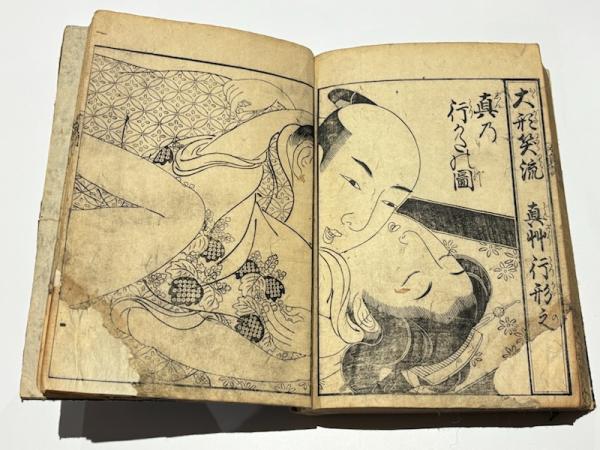 大形笑流　真艸行形之
真乃
行かた乃圖